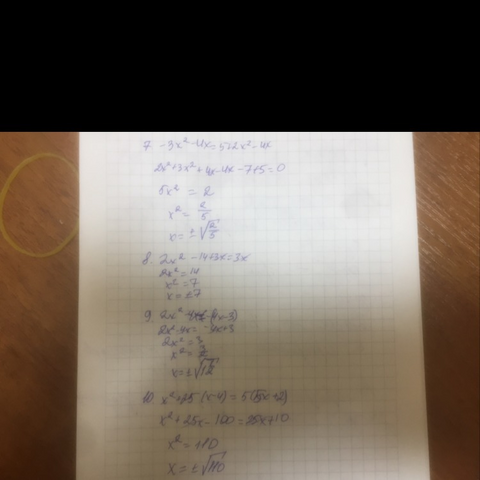 7. -3x² - 4x = 5 + 2x² - 4x
2x² + 3x² + 4x - 4x - 7 + 5 = 0
5x² = 2
x² = 2/5
x = ±√2/5
8. 2x² - 14 + 3x = 3x
2x² = 14
x² = 7
x = ±7
9. 2x² (4x-3)
2x² - 4x = -4x + 3
2x² = 3
x² = 3/2
x = ±√
10. x² + 25 (x-4) = 5(5x+2)
x² + 25x - 100 = 25x + 10
x² = 110
x = ±√110